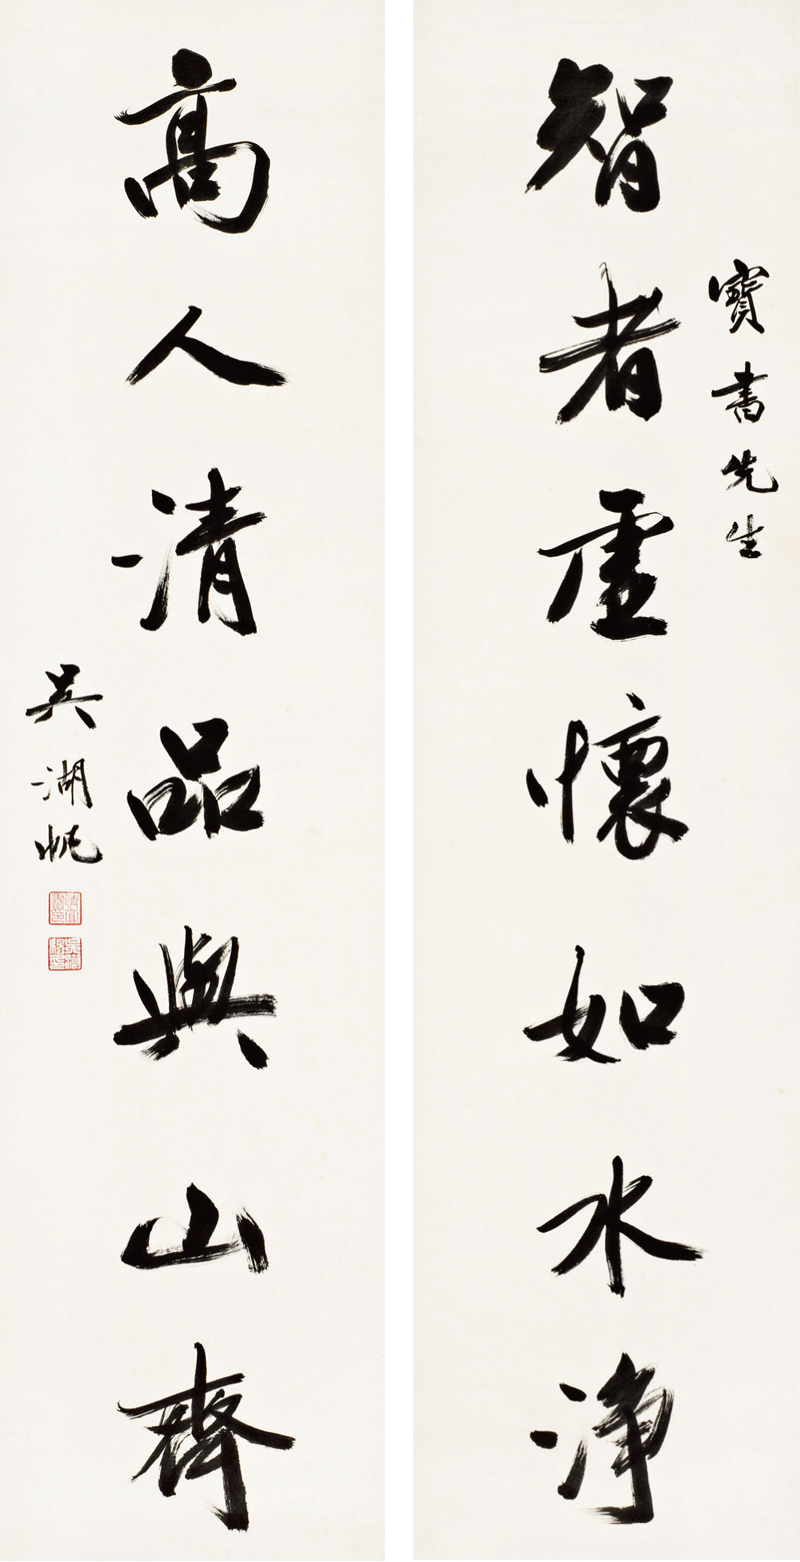 寶書先生
智者虛懷如水淨
高人清品與山齊
吳湖帆